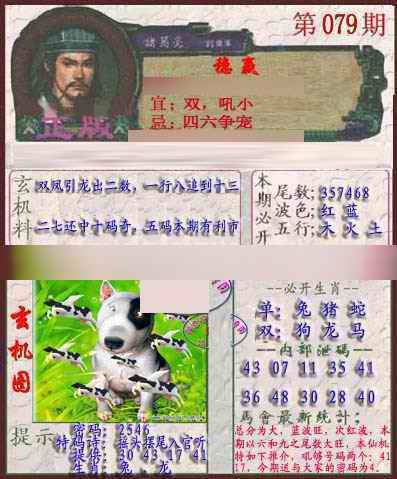 第079期
諸葛亮 劉備軍
稳赢
宜：双，吼小
忌：四六争宠
正版
玄机料
双凤引龙出二数，一行入追到十三
二七还中十码奇，五码本期有利市
本期必开
尾数：357468
波色：红 蓝
五行：木 火 土
玄机图
必开生肖
单：兔 猪 蛇
双：狗 龙 马
内部泄码
43 07 11 35 41
36 48 30 28 40
馬會最新統计：
总分为大，蓝波旺，次红波，本
期以六和九之尾数大旺，本仙机
特如下推介，吼够号码两个：41
17，今期送与大家的密码为4.
提示
密码：2546
特码诗：摇头摆尾入官听
提供：30 43 17 41
生肖：兔，龙